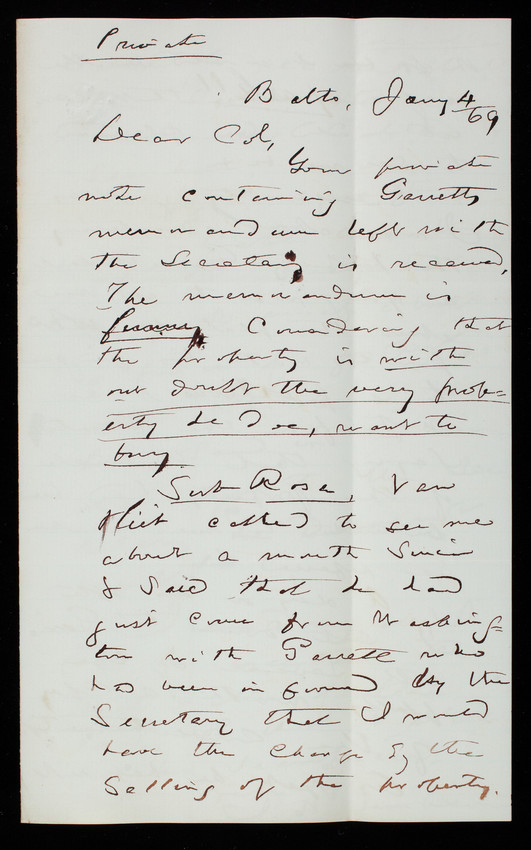 Private
Balto, Jany 4/69
Dear Col,
Your private
note containing Garretts
memorandum left with
the Secretary is received,
The memorandum is
funny Considering that
the property is with
out doubt the very prop=
erty he Does, want to
buy.
Sub Rosa, Van
Vliet called to see me
about a month Since
& Said that he had
just come from Washing=
ton with Garrett who
had been informed by the
Secretary that I would
have the charge of the
Selling of the property.